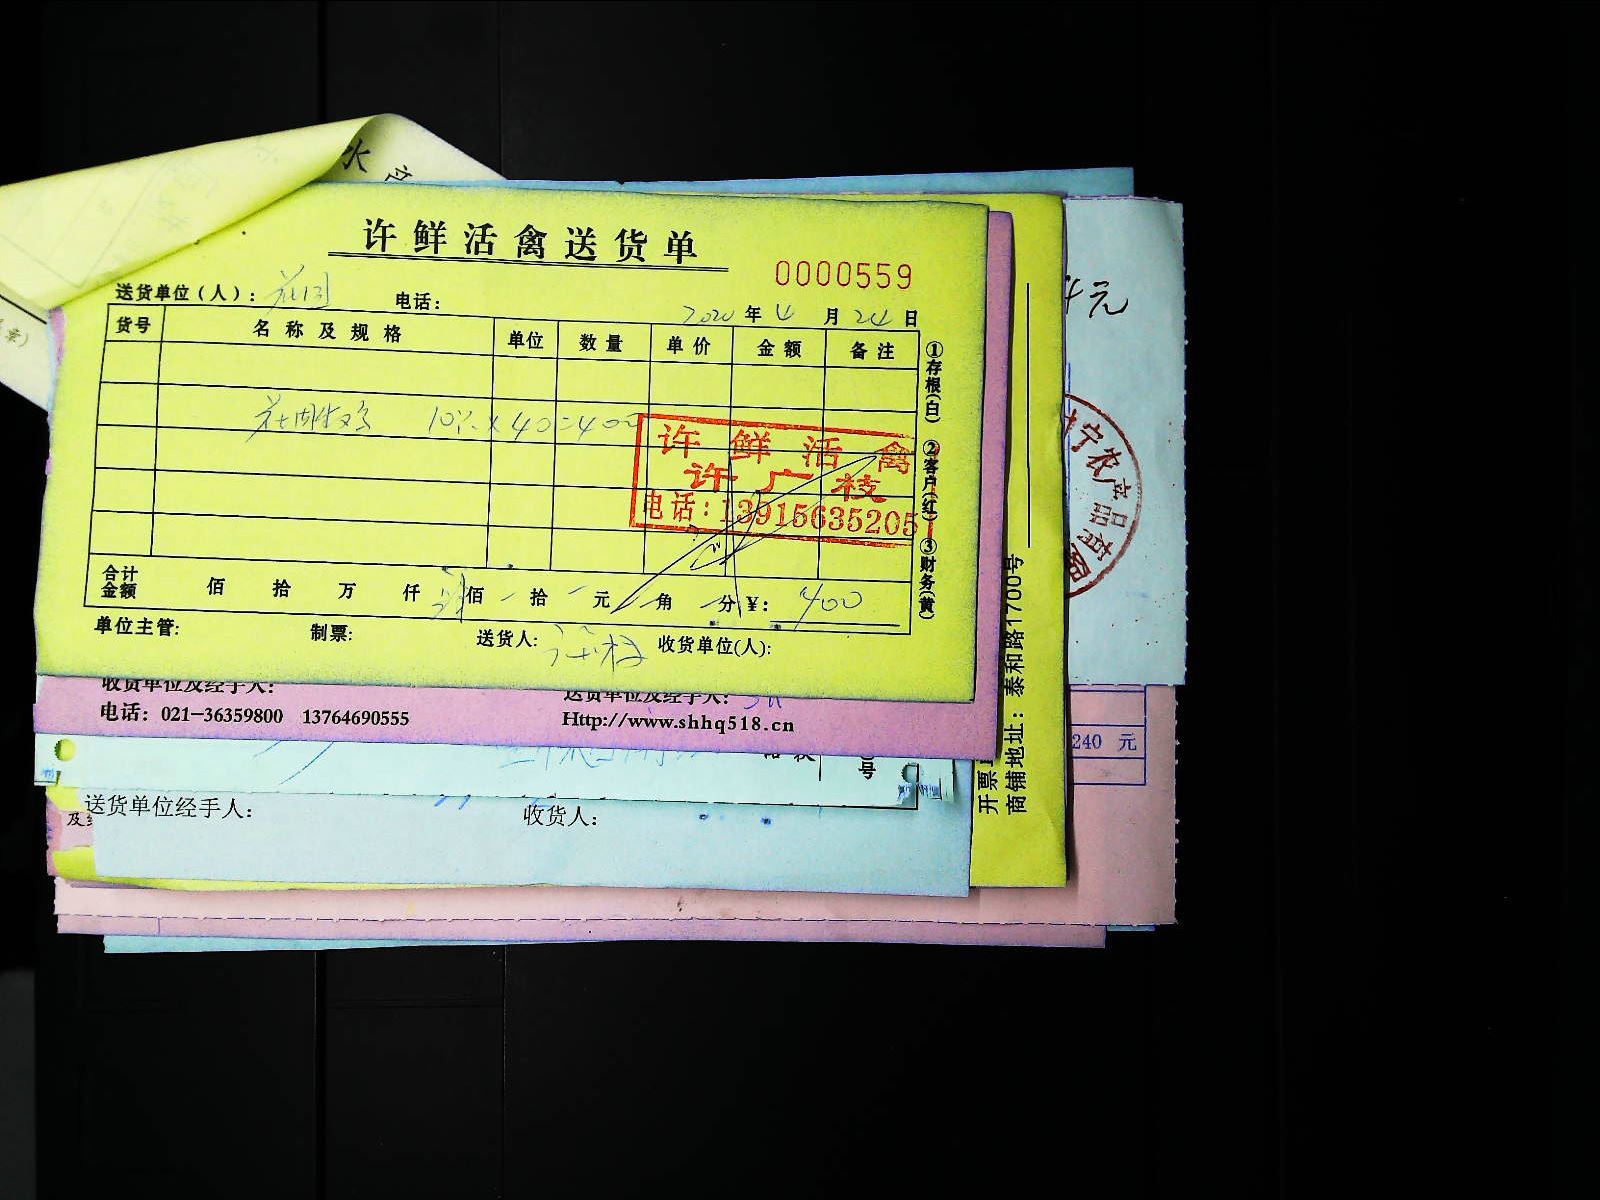 水产
许鲜活禽送货单
0000559
送货单位(人):
电话:
2020年4月24日
货号 名称及规格 单位 数量 单价 金额 备注
10只×40=400
许鲜活禽
许广枝
电话:13915635205
①存根(白) ②客户(红) ③财务(黄)
合计金额 佰 拾 万 仟 肆佰 拾 元 角 分 ¥: 400
单位主管: 制票: 送货人: 收货单位(人):
收货单位及经手人: 送货单位及经手人:
电话: 021-36359800 13764690555 Http://www.shhq518.cn
号
送货单位经手人: 收货人:
商铺地址:泰和路1700号
元
宁农产品
240 元